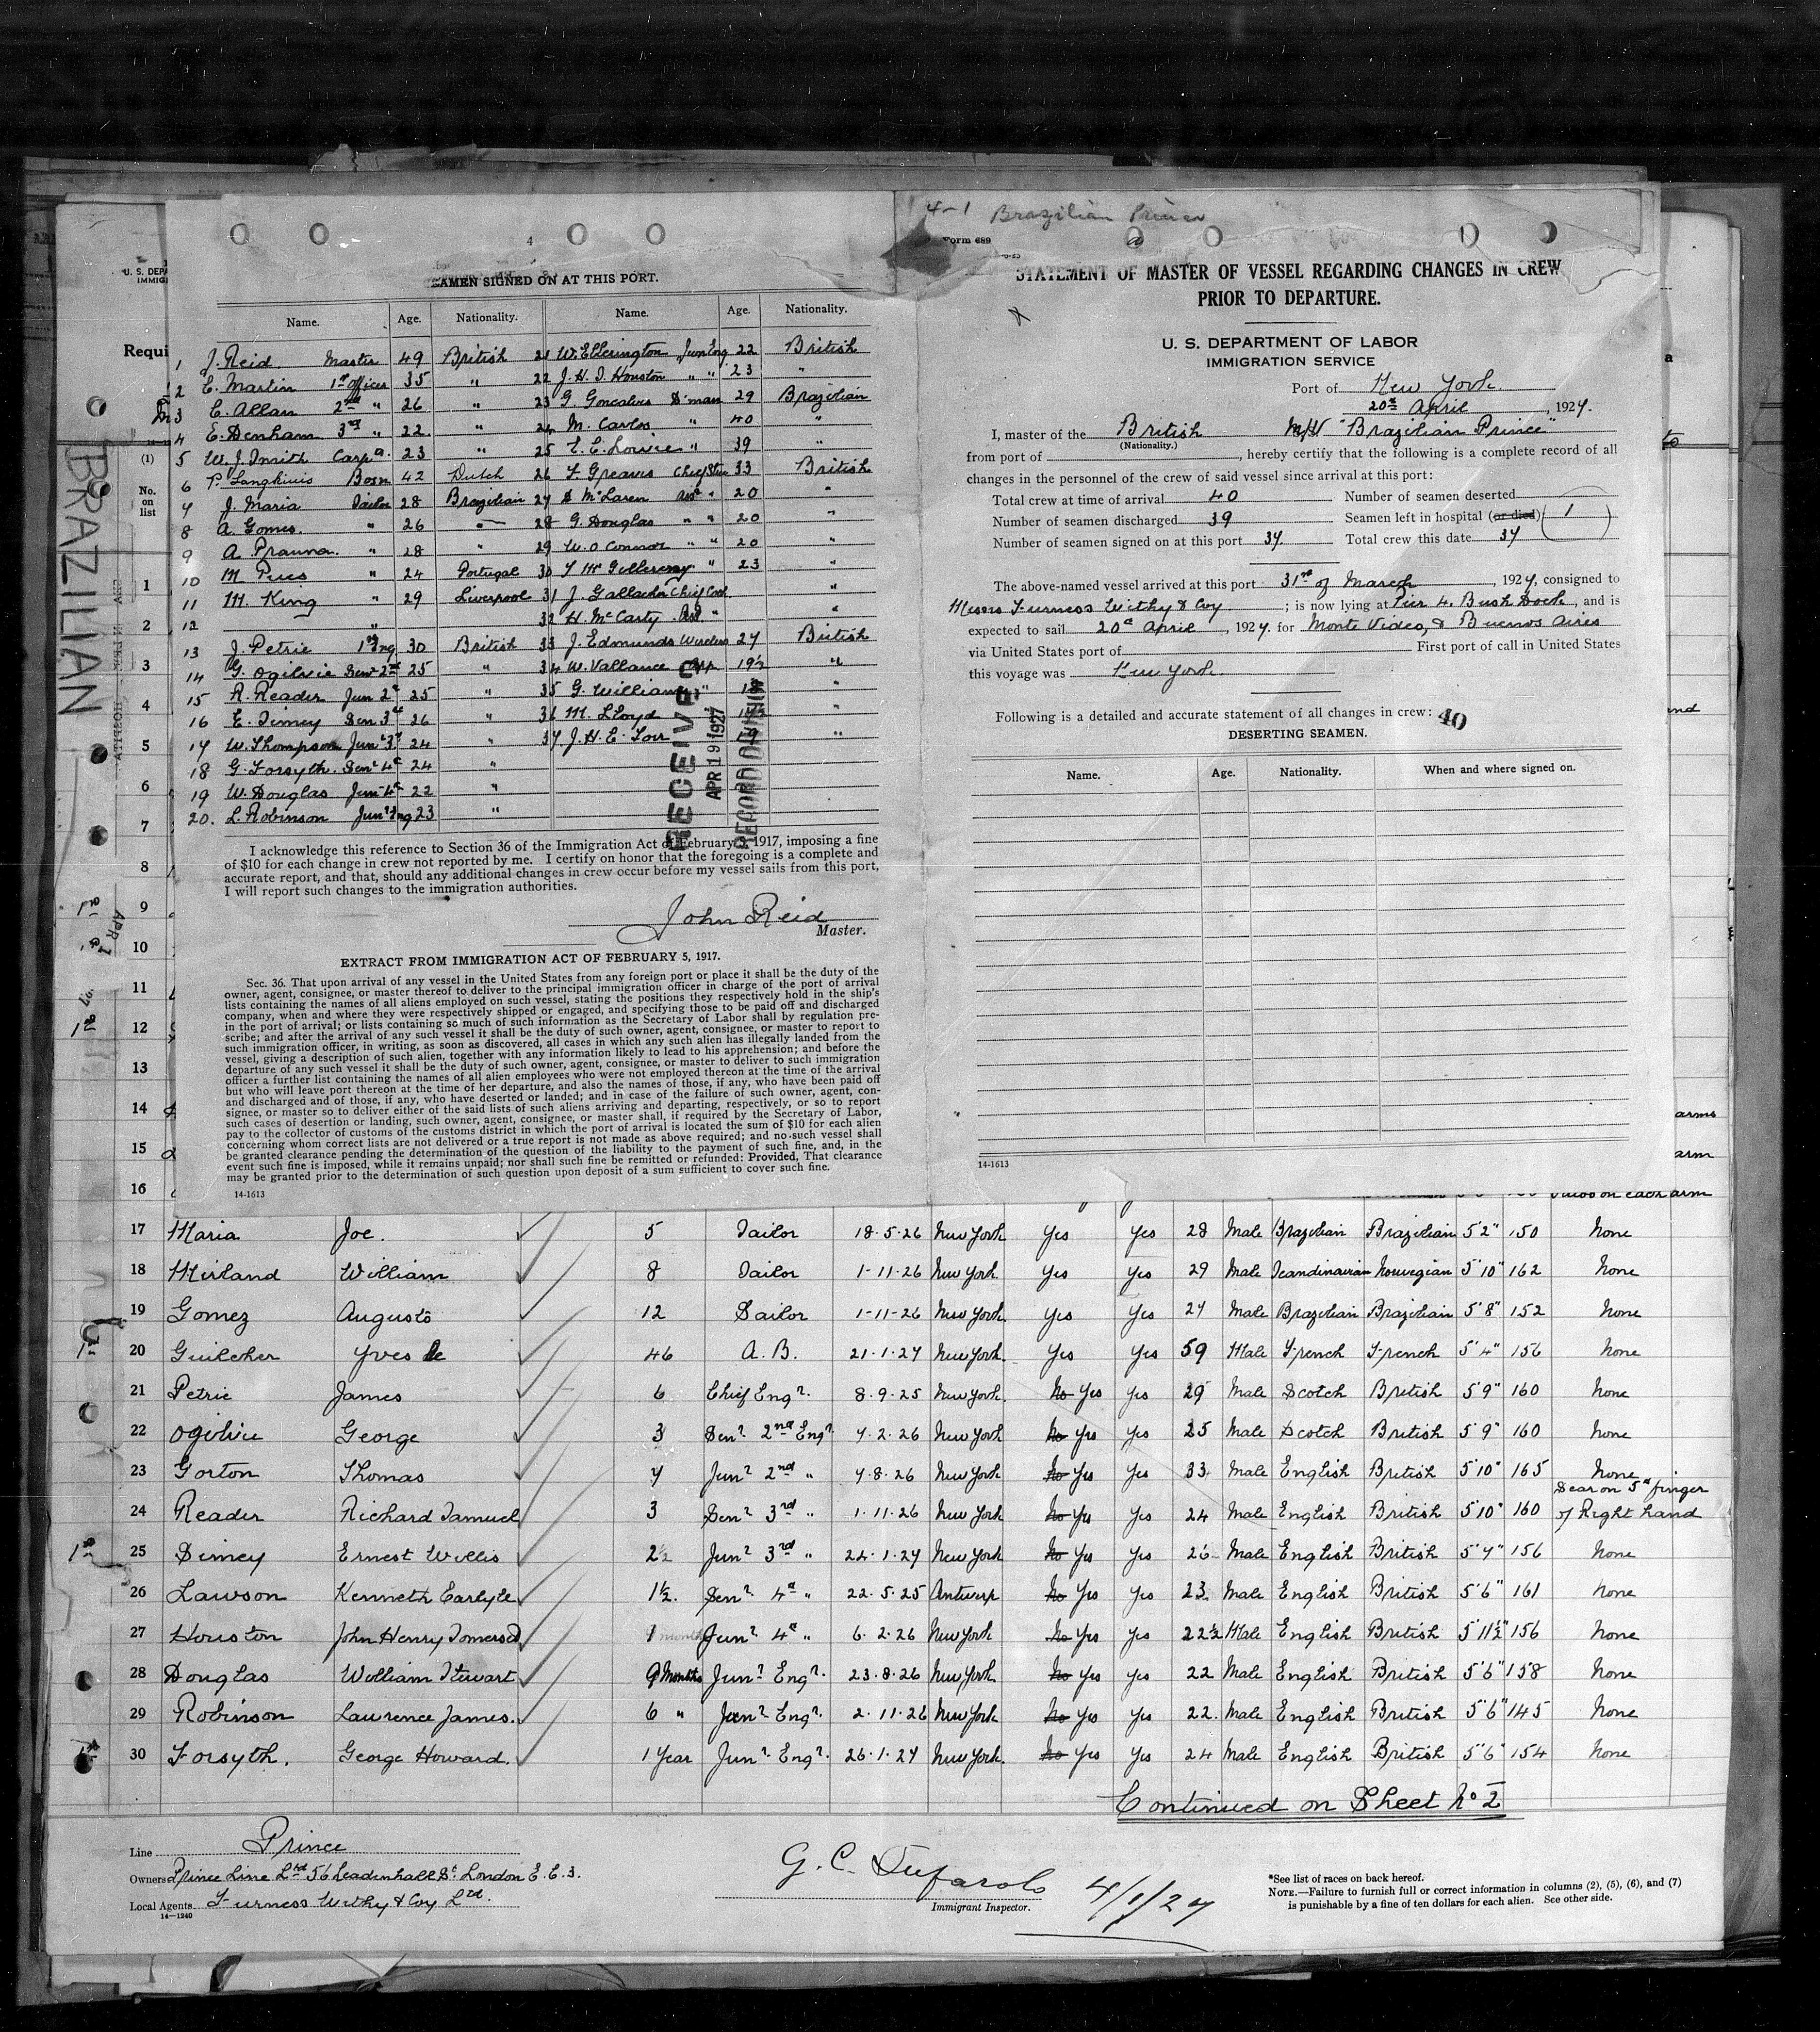 4-1 Brazilian Prince
4
SEAMEN SIGNED ON AT THIS PORT.
Name. Age. Nationality. Name. Age. Nationality.
1 J. Reid Master 49 British 21 W. Ellerington Jun Eng 22 British
2 E. Martin 1st Officer 35 " 22 J. H. S. Houston " " 23 "
3 E. Allan 2nd " 26 " 23 G. Goncalves S'man 29 Brazilian
4 E. Denham 3rd " 22 " 24 M. Carlos " 40 "
5 W. J. Smith Carpr. 23 " 25 "  39 "
6 P. Bosn 42 Dutch 26 F. Greaves Chief Stew 33 British
7 J. Maria Sailor 28 Brazilian 27 S McLaren Asst " 20 "
8 A. Gomes. " 26 " 28 G. Douglas " " 20 "
9 A. " 28 " 29 W. O Connor " " 20 "
10 M " 24 Portugal 30 " 23 "
11 M. King " 29 Liverpool 31 J. Gallacher Chief Cook
12 " 32 H. McCarty Asst " "
13 J. Petrie 1st Eng 30 British 33 J. Edmunds Wireless 27 British
14 G. Ogilvie Senr 2nd 25 " 34 W. Vallance App. 19½ "
15 R. Reader Jun 2d 25 " 35 G. William " "
16 E. Simey Sen 3rd 26 " 36 M. Lloyd "
17 W. Thompson Junr 3rd 24 " 37 J. H. E. "
18 G. Forsyth. Senr 4th 24 "
19 W. Douglas Junr 4th 22 "
20. L. Robinson Junr Eng 23 "
RECEIVED
APR 19 1927
RECORD DIVISION
I acknowledge this reference to Section 36 of the Immigration Act of February 5, 1917, imposing a fine
of $10 for each change in crew not reported by me. I certify on honor that the foregoing is a complete and
accurate report, and that, should any additional changes in crew occur before my vessel sails from this port,
I will report such changes to the immigration authorities.
John Reid
Master.
EXTRACT FROM IMMIGRATION ACT OF FEBRUARY 5, 1917.
Sec. 36. That upon arrival of any vessel in the United States from any foreign port or place it shall be the duty of the
owner, agent, consignee, or master thereof to deliver to the principal immigration officer in charge of the port of arrival
lists containing the names of all aliens employed on such vessel, stating the positions they respectively hold in the ship's
company, when and where they were respectively shipped or engaged, and specifying those to be paid off and discharged
in the port of arrival; or lists containing so much of such information as the Secretary of Labor shall by regulation pre-
scribe; and after the arrival of any such vessel it shall be the duty of such owner, agent, consignee, or master to report to
such immigration officer, in writing, as soon as discovered, all cases in which any such alien has illegally landed from the
vessel, giving a description of such alien, together with any information likely to lead to his apprehension; and before the
departure of any such vessel it shall be the duty of such owner, agent, consignee, or master to deliver to such immigration
officer a further list containing the names of all alien employees who were not employed thereon at the time of the arrival
but who will leave port thereon at the time of her departure, and also the names of those, if any, who have been paid off
and discharged and of those, if any, who have deserted or landed; and in case of the failure of such owner, agent, con-
signee, or master so to deliver either of the said lists of such aliens arriving and departing, respectively, or so to report
such cases of desertion or landing, such owner, agent, consignee, or master shall, if required by the Secretary of Labor,
pay to the collector of customs of the customs district in which the port of arrival is located the sum of $10 for each alien
concerning whom correct lists are not delivered or a true report is not made as above required; and no such vessel shall
be granted clearance pending the determination of the question of the liability to the payment of such fine, and, in the
event such fine is imposed, while it remains unpaid; nor shall such fine be remitted or refunded: Provided, That clearance
may be granted prior to the determination of such question upon deposit of a sum sufficient to cover such fine.
14-1613
Form 689
STATEMENT OF MASTER OF VESSEL REGARDING CHANGES IN CREW
PRIOR TO DEPARTURE.
U. S. DEPARTMENT OF LABOR
IMMIGRATION SERVICE
Port of New York.
20th April, 1927.
I, master of the British M/V "Brazilian Prince"
(Nationality.)
from port of , hereby certify that the following is a complete record of all
changes in the personnel of the crew of said vessel since arrival at this port:
Total crew at time of arrival 40 Number of seamen deserted
Number of seamen discharged 39 Seamen left in hospital (or died) (1)
Number of seamen signed on at this port 37. Total crew this date 37
The above-named vessel arrived at this port 31st of March, 1927, consigned to
Messrs Furness Withy & Coy; is now lying at Pier 4. Bush Dock, and is
expected to sail 20th April, 1927. for Monte Video, & Buenos Aires
via United States port of First port of call in United States
this voyage was New York.
Following is a detailed and accurate statement of all changes in crew: 40
DESERTING SEAMEN.
Name. Age. Nationality. When and where signed on.
14-1613
U. S. DEPA
IMMIG
Requi
BRAZILIAN
(1)
No.
on
list
1
2
3
4
5
6
7
8
9
10
11
12
13
14 arms
15 arm
16 each arm
17 Maria Joe. 5 Sailor 18.5.26 New York Yes Yes 28 Male Brazilian Brazilian 5'2" 150 None
18 Mirland William 8 Sailor 1-11-26 New York. Yes Yes 29 Male Scandinavian Norwegian 5'10" 162 None
19 Gomez Augusto 12 Sailor 1-11-26 New York. Yes Yes 27 Male Brazilian Brazilian 5'8" 152 None
20 Guilcher Yves le 46 A.B. 21.1.27 New York. Yes Yes 59 Male French French 5'4" 156 None
21 Petrie James 6 Chief Engr. 8.9.25 New York No Yes Yes 29 Male Scotch British 5'9" 160 None
22 Ogilvie George 3 Senr 2nd Engr. 7.2.26 New York No Yes Yes 25 Male Scotch British 5'9" 160 None
23 Gorton Thomas 7 Junr 2nd " 7.8.26 New York No Yes Yes 33 Male English British 5'10" 165 None
24 Reader Richard Samuel 3 Senr 3rd " 1.11.26 New York No Yes Yes 24 Male English British 5'10" 160 Scar on 5th finger of Right hand
25 Simey Ernest Willis 2½ Junr 3rd " 24.1.27 New York No Yes Yes 26 Male English British 5'7" 156 None
26 Lawson Kenneth Carlyle 1½. Senr 4th " 22.5.25 Antwerp No Yes Yes 23 Male English British 5'6" 161 None
27 Houston John Henry Somerset 1 month Junr 4th " 6.2.26 New York No Yes Yes 22½ Male English British 5'11½" 156 None
28 Douglas William Stewart 9 months Junr Engr. 23.8.26 New York No Yes Yes 22 Male English British 5'6" 158 None
29 Robinson Lawrence James. 6 " Junr Engr. 2.11.26 New York No Yes Yes 22. Male English British 5'6" 145 None
30 Forsyth. George Howard. 1 Year Junr Engr. 26.1.27 New York. No Yes Yes 24 Male English British 5'6" 154 None
Continued on Sheet No 2
Line Prince
Owners Prince Line Ltd 56 Leadenhall St. London E.C.3.
Local Agents Furness Withy & Coy Ltd.
14-1240
G. C. Dufarolo 4/1/27
Immigrant Inspector.
*See list of races on back hereof.
NOTE.—Failure to furnish full or correct information in columns (2), (5), (6), and (7)
is punishable by a fine of ten dollars for each alien. See other side.